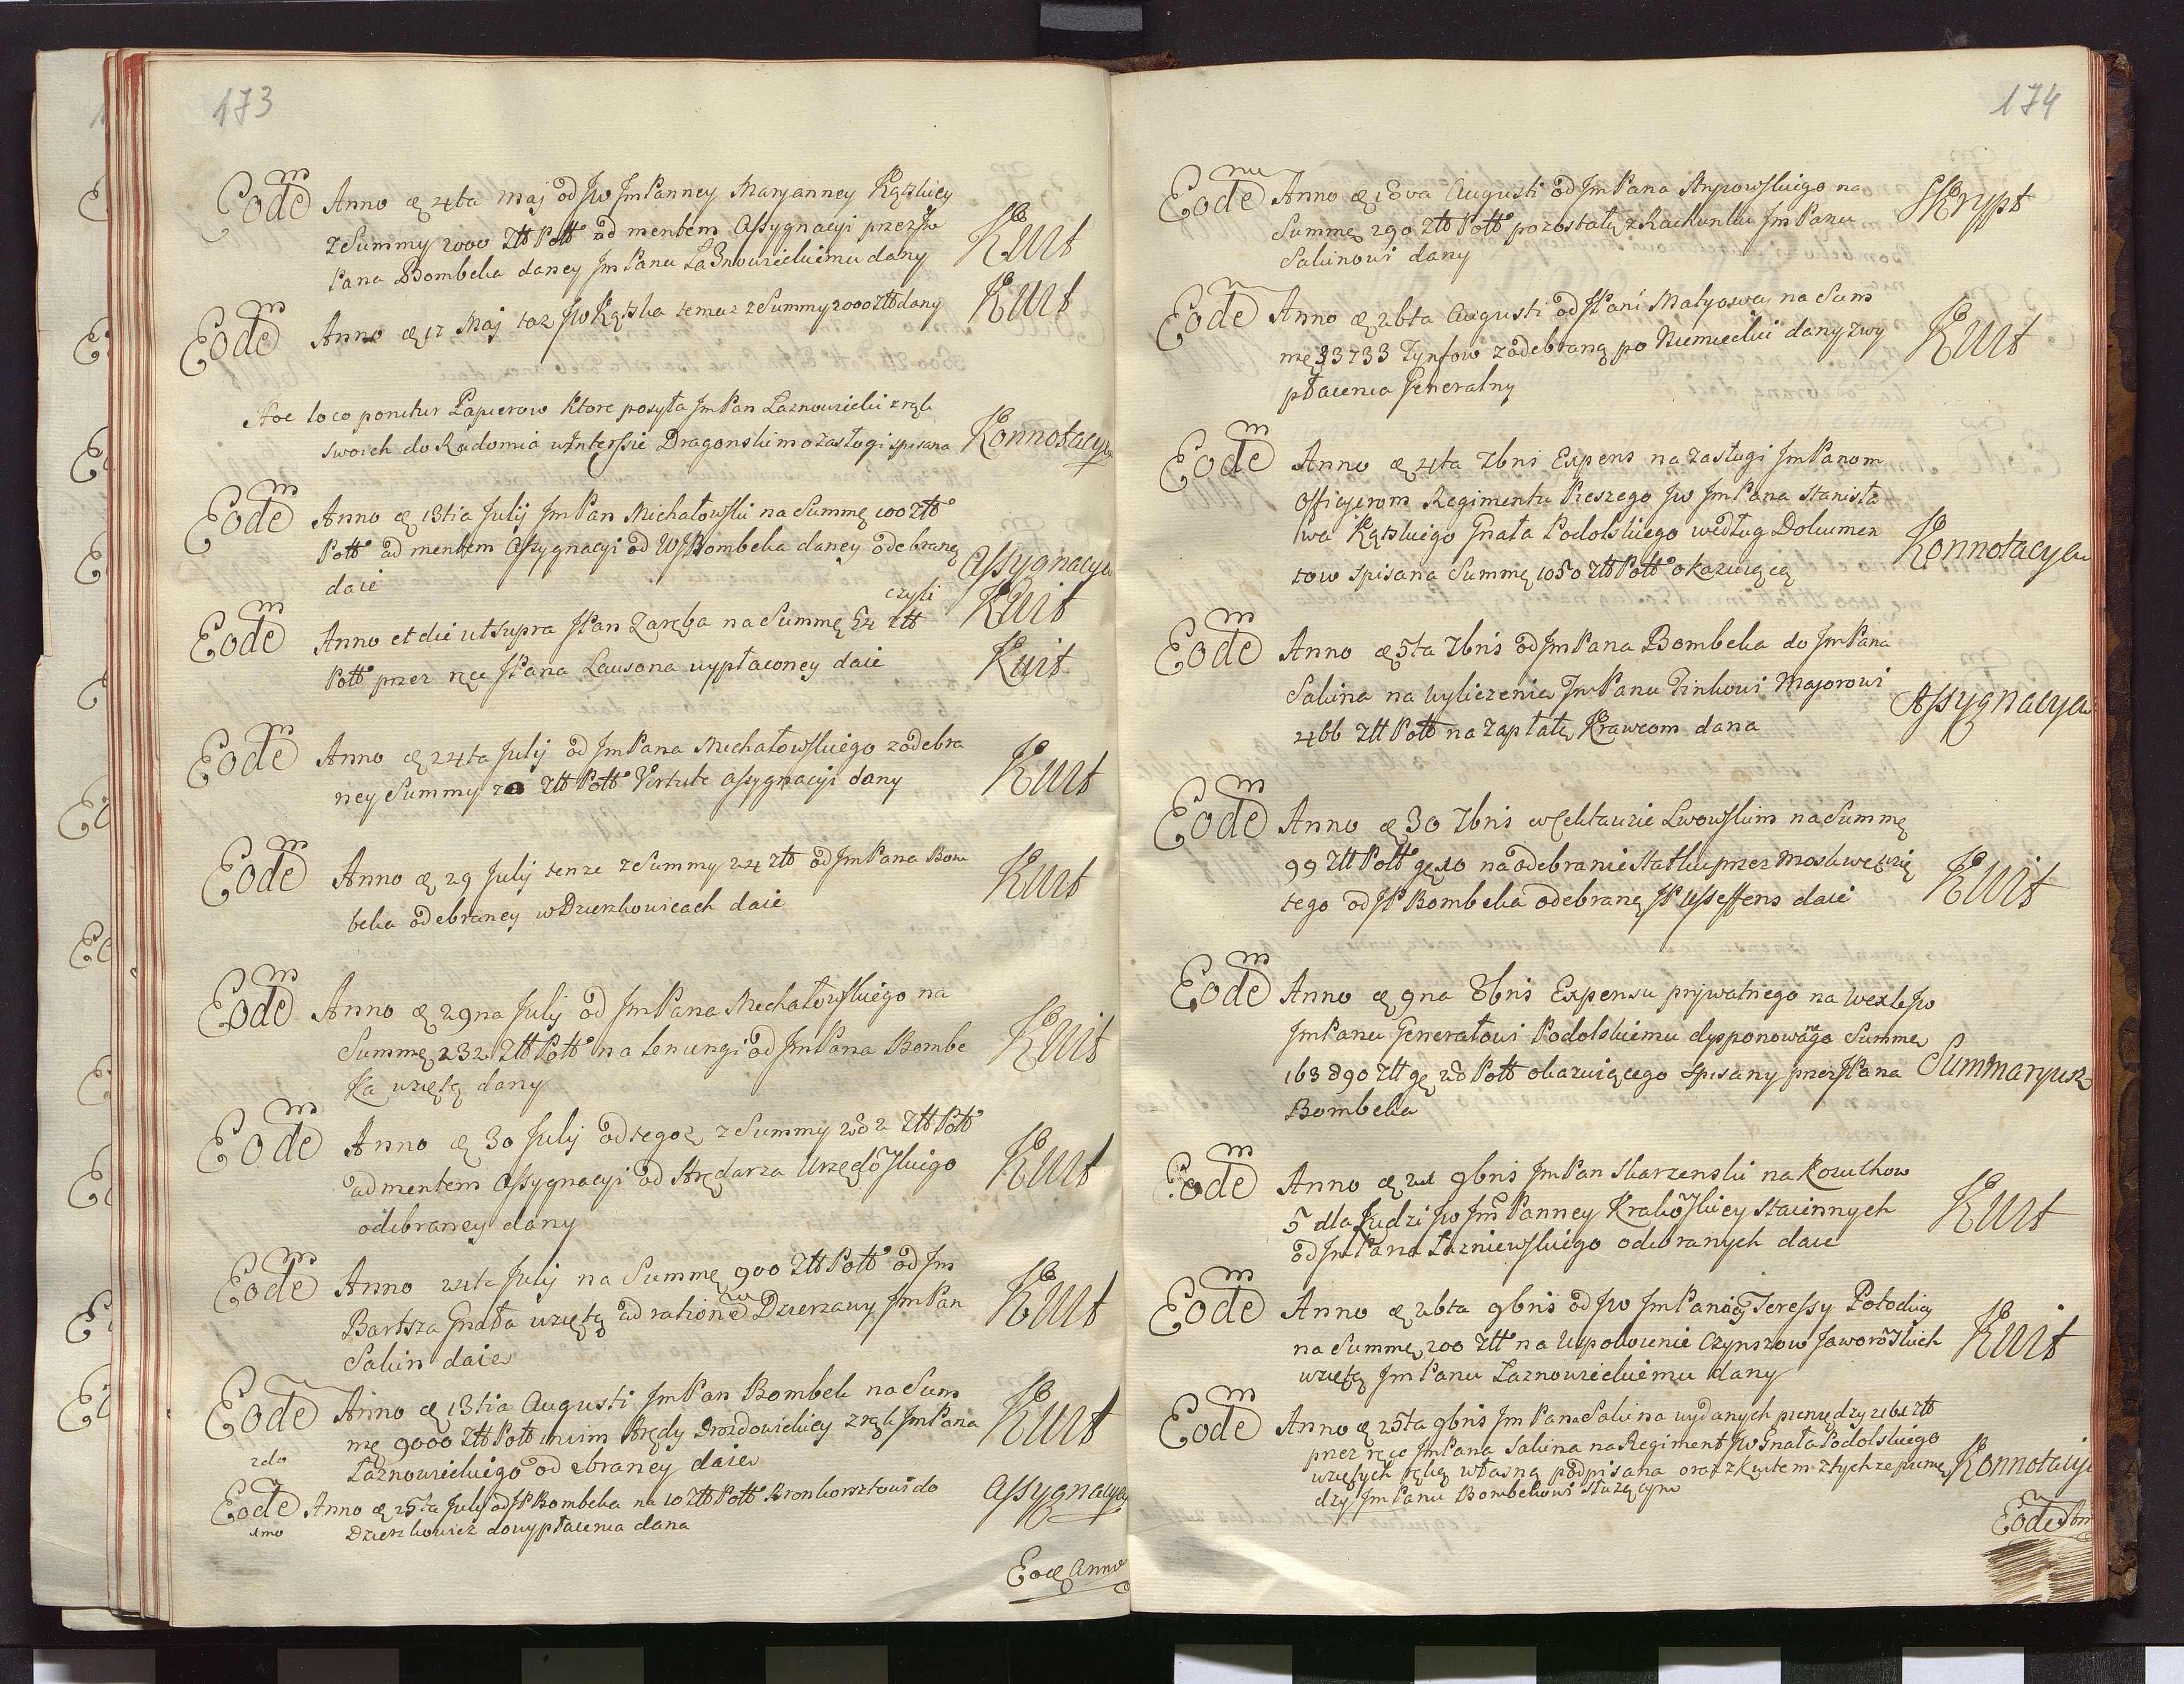 173
Eodem Anno d. 4ta Maj od Jw JmPanney Maryanney Kątskiey
z Summy 2000 Ztt Polt ad mentem Assygnacyi przez Jw
Pana Bombeka daney JmPanu Laznowieckiemu dany Kwit
Eodem Anno d. 12 Maj taz Jw Kątska temuz z Summy 2000 Ztt dany Kwit
Hoc loco ponitur Papierow ktore posyła JmPan Laznowiecki z rąk
swoich do Radomia w Interssie Dragonskim o zasługi spisana Konnotacya
Eodem Anno d. 13tia Julij JmPan Michałowski na Summę 100 Ztt
Polt ad mentem Assygnacyi od WJBombeka daney odebraną
daie Assygnacya
czyli Kwit
Eodem Anno et die ut supra JPan Zaręba na Summę 54 Ztt
Polt przez ręce JPana Lausona wypłaconey daie Kwit
Eodem Anno d. 24ta Julij od JmPana Michałowskiego z odebra
ney Summy Ztt Polt Virtute assygnacyi dany Kwit
Eodem Anno d. 29 Julij tenze z Summy 24 Ztt od JmPana Bom
beka odebraney w Dzierzkowicach daie Kwit
Eodem Anno d. 29na Julij od JmPana Michałowskiego na
Summę 232 Ztt Polt na lenungi od JmPana Bombe
ka wziętą dany Kwit
Eodem Anno d. 30 Julij od tegoz z Summy 282 Ztt Polt
ad mentem Assygnacyi od Arędarza Urzędowskiego
odebraney dany Kwit
Eodem Anno 24ta Julij na Summę 900 Ztt Polt od Jm
Bartsza Gnała wziętą ad rationem Dzierzawy JmPan
Sakin daie Kwit
Eodem Anno d. 13tia Augusti JmPan Bombek na Sum
mę 9000 Ztt Polt Arędy Drozdowickiey z rąk JmPana
2do Laznowieckiego odebraney daie Kwit
Eodem Anno d. 25ta Julij od JP Bombeka na 10 Ztt Polt Bronhorsztowi do
1mo Dzierzkowicz do wypłacenia dana Assygnacya
Eod Anno
174
Eodem Anno d. 18va Augusti od JmPana Anpowskiego na
Summę 290 Ztt Polt pozostałą z Rachunku JmPanu
Sakinowi dany Skrypt
Eodem Anno d. 26ta Augusti od JPani Matyasowej na Sum
mę 33733 Tynfow z odebraną po Niemiecku dany z wy
płacenia Generalny Kwit
Eodem Anno d. 4ta 7bris Expens na zasługi JmPanom
Officyerom Regimentu Pieszego Jw JmPana Stanisła
wa Kątskiego Gnała Podolskiego według Dokumen
tow spisana Summę 1050 Ztt Polt okazuiącą Konnotacya
Eodem Anno d. 5ta 7bris od JmPana Bombeka do JmPana
Sakina na wyliczenie JmPanu Finkowi Majorowi
466 Ztt Polt na zapłatę Krawcom dana Assygnacya
Eodem Anno d. 30 7bris w Cekhauzie Lwowskim na Summę
99 Ztt Polt gr 10 na odebranie Statku przez Moskwę wzię
tego od JP Bombeka odebraną JP daie Kwit
Eodem Anno d. 9na 8bris Expensu prywatnego na wexle Jw
JmPanu Generałowi Podolskiemu dysponowanego Summę
163890 Ztt gr 28 Polt okazuiącego spisany przez JPana
Bombeka Summaryusz
Eodem Anno d. 21 9bris JmPan Skarzenski na Kozuchow
5 dla Ludzi Jw Jm Panney Krakowskiey staiennych
od JmPana Lazniewskiego odebranych daie Kwit
Eodem Anno d. 26ta 9bris od Jw JmPaniey Teressy Potockiey
na Summę 200 Ztt na uspokoienie Czynszow Jaworowskich
wziętą JmPanu Laznowieckiemu dany Kwit
Eodem Anno d. 25ta 9bris JmPana Sakina wydanych pieniędzy 2161 Ztt
przez ręce JmPana Sakina na Regiment Jw Gnała Podolskiego
wziętych ręką własną podpisana oraz z Kwitem z tychze pienię
dzy JmPanu Bombekowi służącym Konnotacya
Eodem Ann